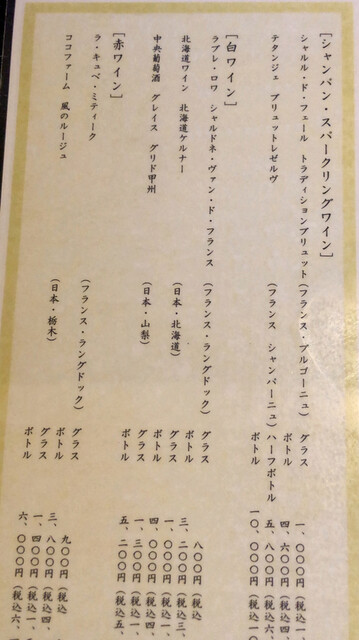 ［シャンパン・スパークリングワイン］
シャルル・ド・フェール　トラディションブリュット（フランス・ブルゴーニュ）　グラス　一、〇〇〇円（税込一、
ボトル　四、六〇〇円（税込
テタンジェ　ブリュットレゼルヴ　（フランス　シャンパーニュ）ハーフボトル　五、八〇〇円（税込六、
ボトル　一〇、〇〇〇円（税込一
［白ワイン］
ラブレ・ロワ　シャルドネ・ヴァン・ド・フランス　（フランス・ラングドック）　グラス　八〇〇円（税込
ボトル　三、二〇〇円（税込三、
北海道ワイン　北海道ケルナー　（日本・北海道）　グラス　一、〇〇〇円（税込一、
ボトル　四、〇〇〇円（税込四、
中央葡萄酒　グレイス　グリド甲州　（日本・山梨）　グラス　一、三〇〇円（税込一、
ボトル　五、二〇〇円（税込五、
［赤ワイン］
ラ・キュベ・ミティーク　（フランス・ラングドック）　グラス　九〇〇円（税込
ボトル　三、八〇〇円（税込四、
ココファーム　風のルージュ　（日本・栃木）　グラス　一、四〇〇円（税込一、
ボトル　六、〇〇〇円（税込六、